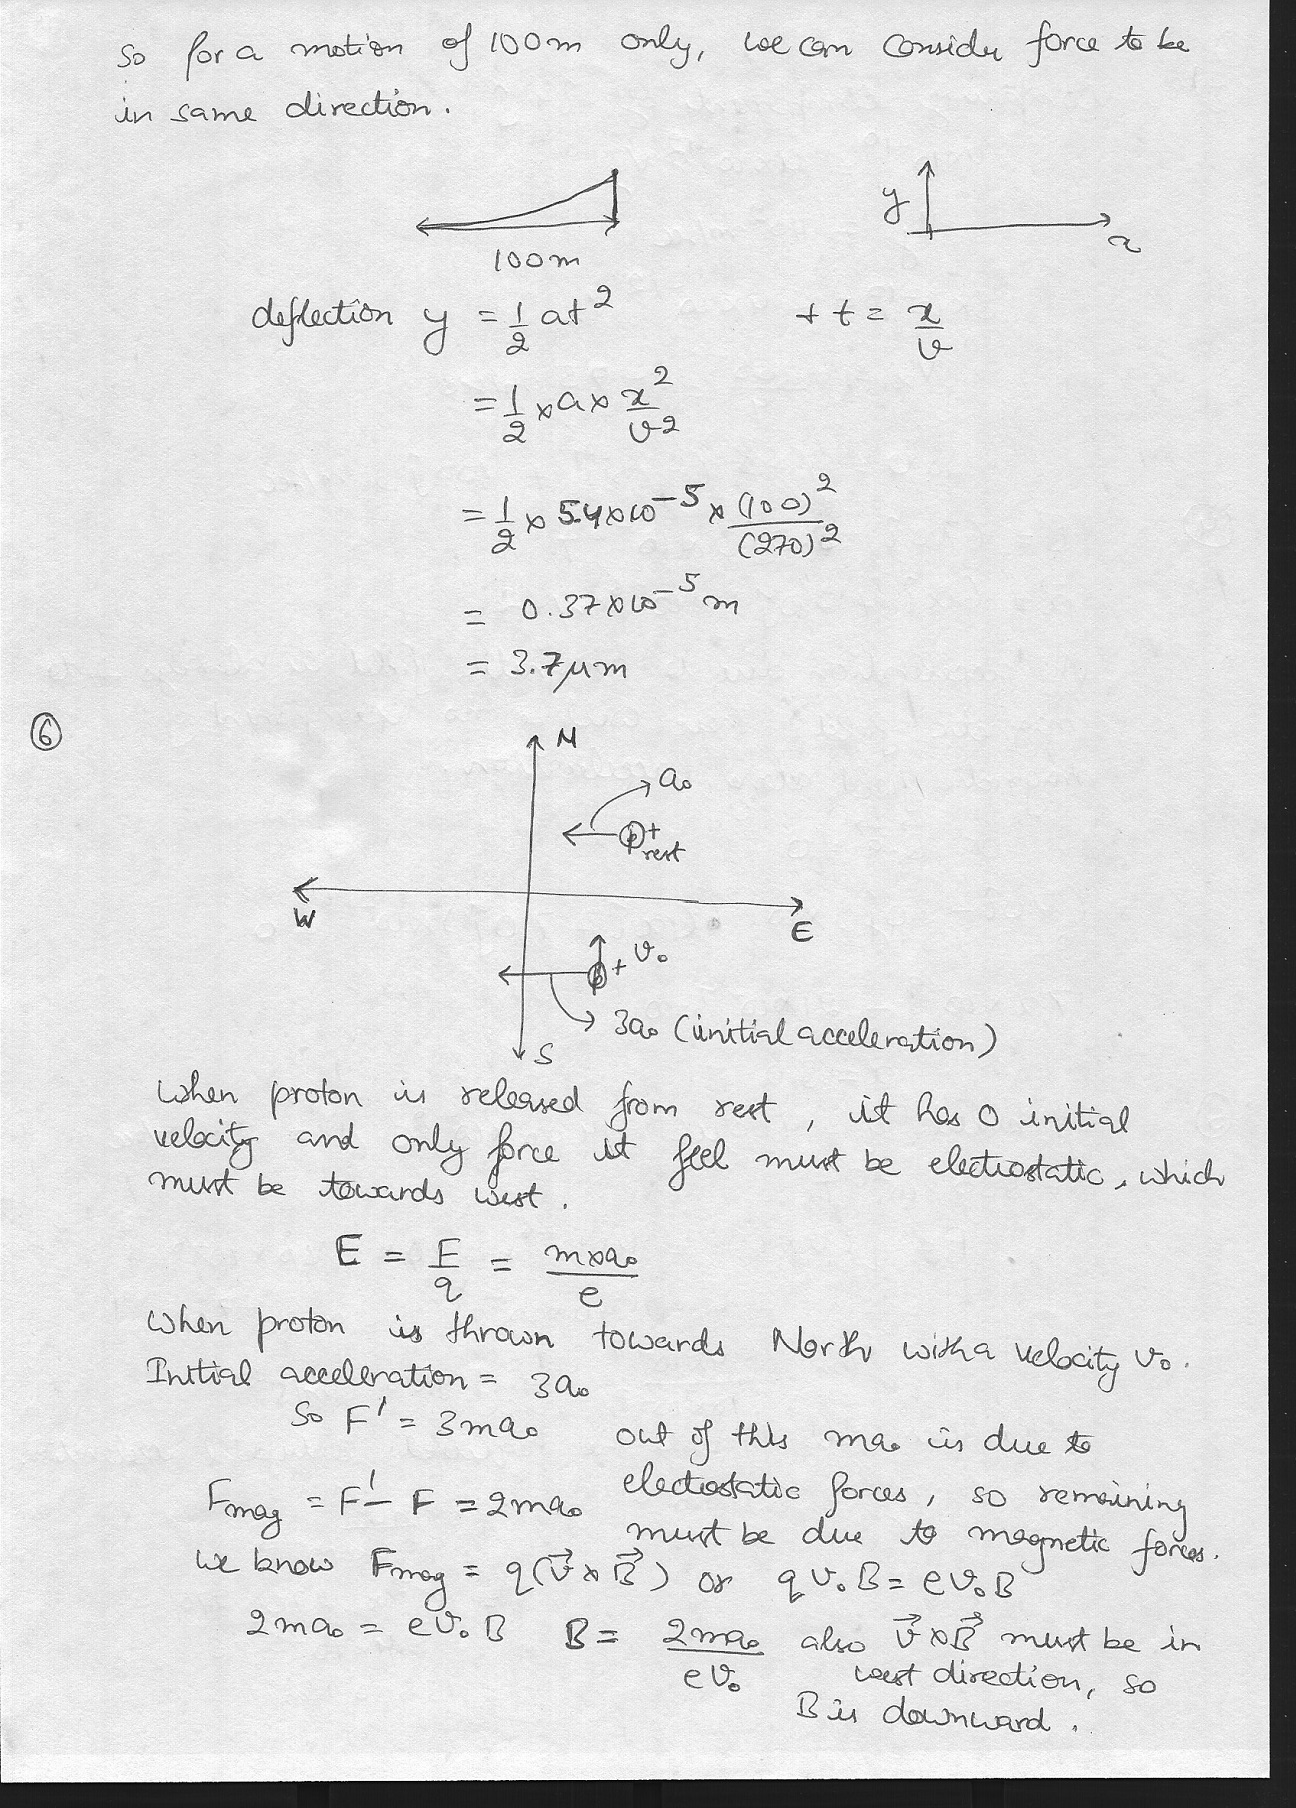 So for a motion of 100m only, we can consider force to be
in same direction.
y
x
100m
deflection y = 1/2 at² + t = x/v
= 1/2 × a × x²/v²
= 1/2 × 5.4×10⁻⁵ × (100)²/(270)²
= 0.37×10⁻⁵ m
= 3.7μm
⑥
N
a₀
p+
rest
W
E
p+ v₀
3a₀ (initial acceleration)
S
When proton is released from rest, it has 0 initial
velocity and only force it feel must be electrostatic, which
must be towards west.
E = F/q = m×a₀/e
When proton is thrown towards North with a velocity v₀.
Initial acceleration = 3a₀
So F' = 3ma₀ out of this ma₀ is due to
electrostatic forces, so remaining
Fmag = F' - F = 2ma₀
must be due to magnetic forces.
We know Fmag = q(v⃗ × B⃗) or qv₀B = ev₀B
2ma₀ = ev₀B B = 2ma₀/ev₀ also v⃗×B⃗ must be in
west direction, so
B is downward.